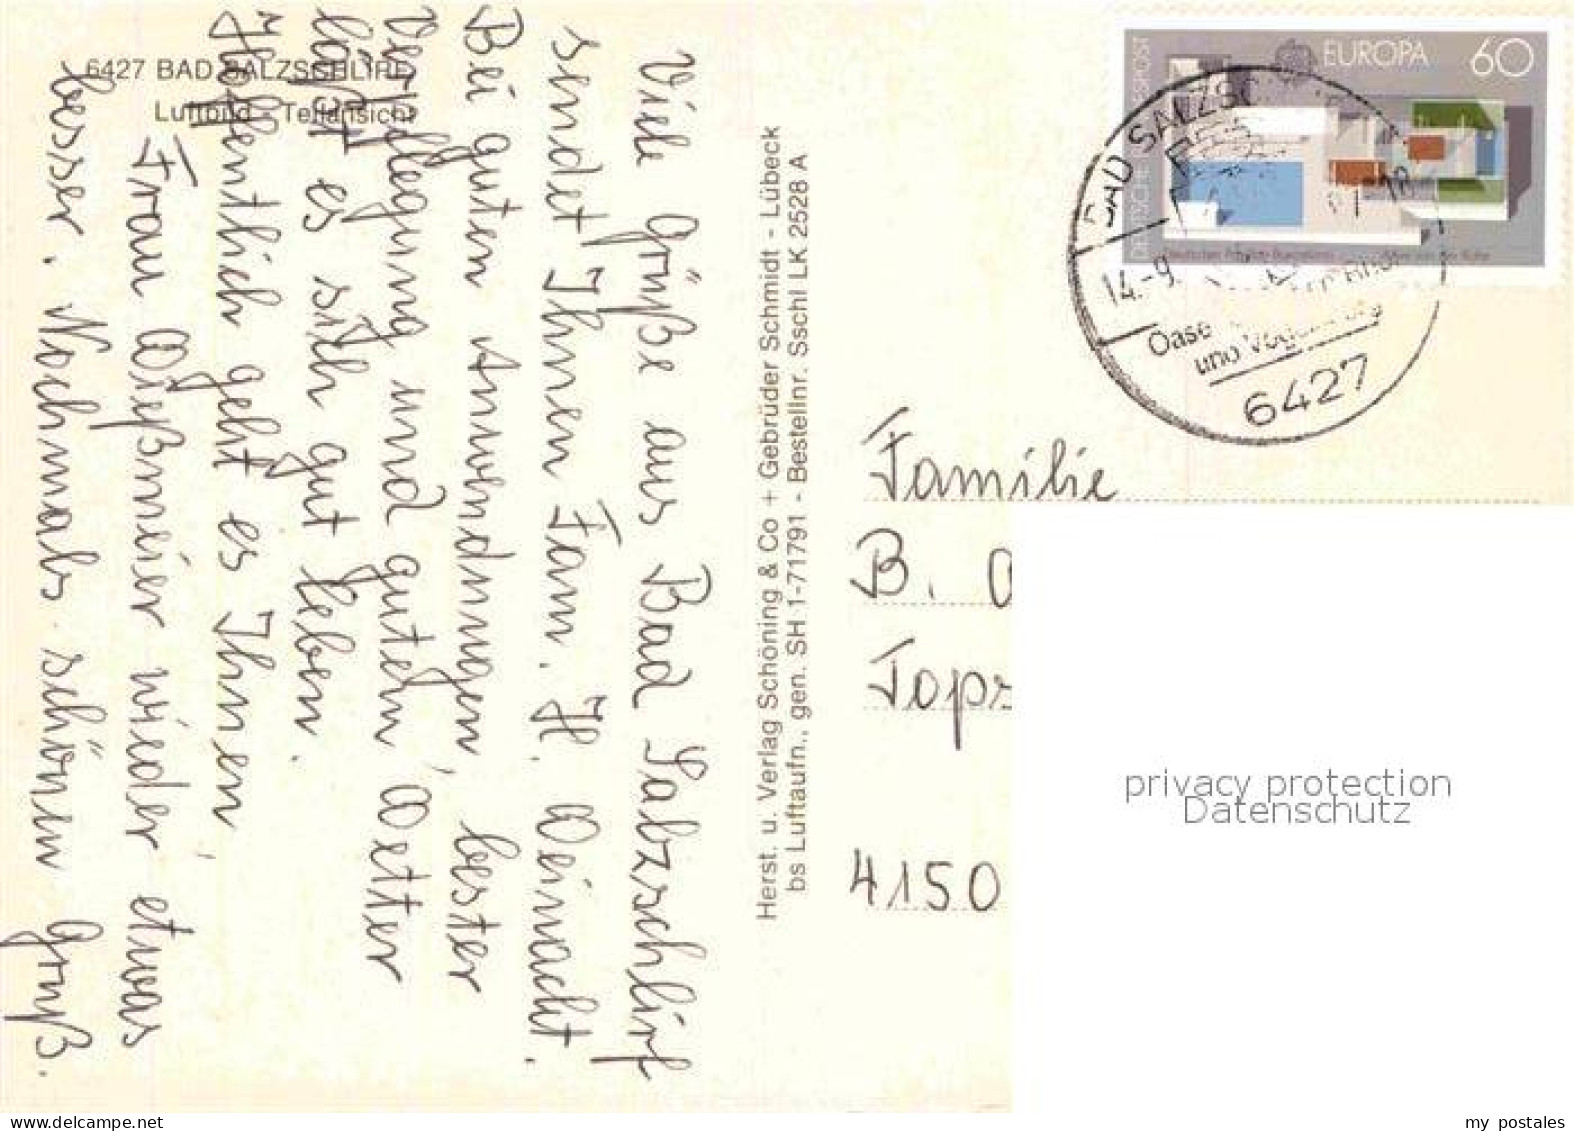 6427 BAD SALZSCHLIRF
Luftbild - Teilansicht
Viele Grüße aus Bad Salzschlirf
sendet Ihnen Fam. H. Weinacht.
Bei guten Anwendungen, bester
Verpflegung und gutem Wetter
läßt es sich gut leben.
Hoffentlich geht es Ihnen,
Frau Wießmeier wieder etwas
besser. Nochmals schönen Gruß.
Herst. u. Verlag Schöning & Co + Gebrüder Schmidt - Lübeck
bs Luftaufn., gen. SH 1-71791 - Bestellnr. Sschl LK 2528 A
DEUTSCHE BUNDESPOST
EUROPA 60
BAD SALZSC
14.-9.
-18
Oase
und Vogelsberg
6427
Familie
B.
Topr
4150
privacy protection
Datenschutz
my postales
www.delcampe.net